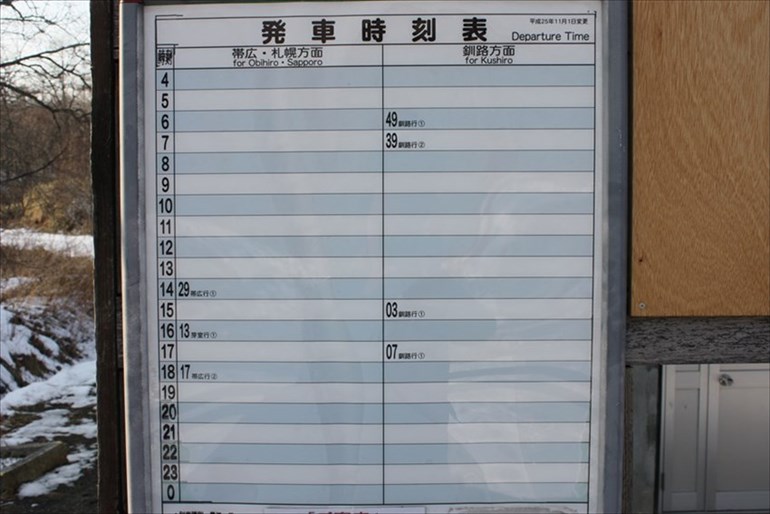 発車時刻表
平成25年11月1日変更
Departure Time
帯広・札幌方面
for Obihiro・Sapporo
釧路方面
for Kushiro
4
5
6 49釧路行①
7 39釧路行②
8
9
10
11
12
13
14 29帯広行①
15 03釧路行①
16 13芽室行①
17 07釧路行①
18 17帯広行②
19
20
21
22
23
0